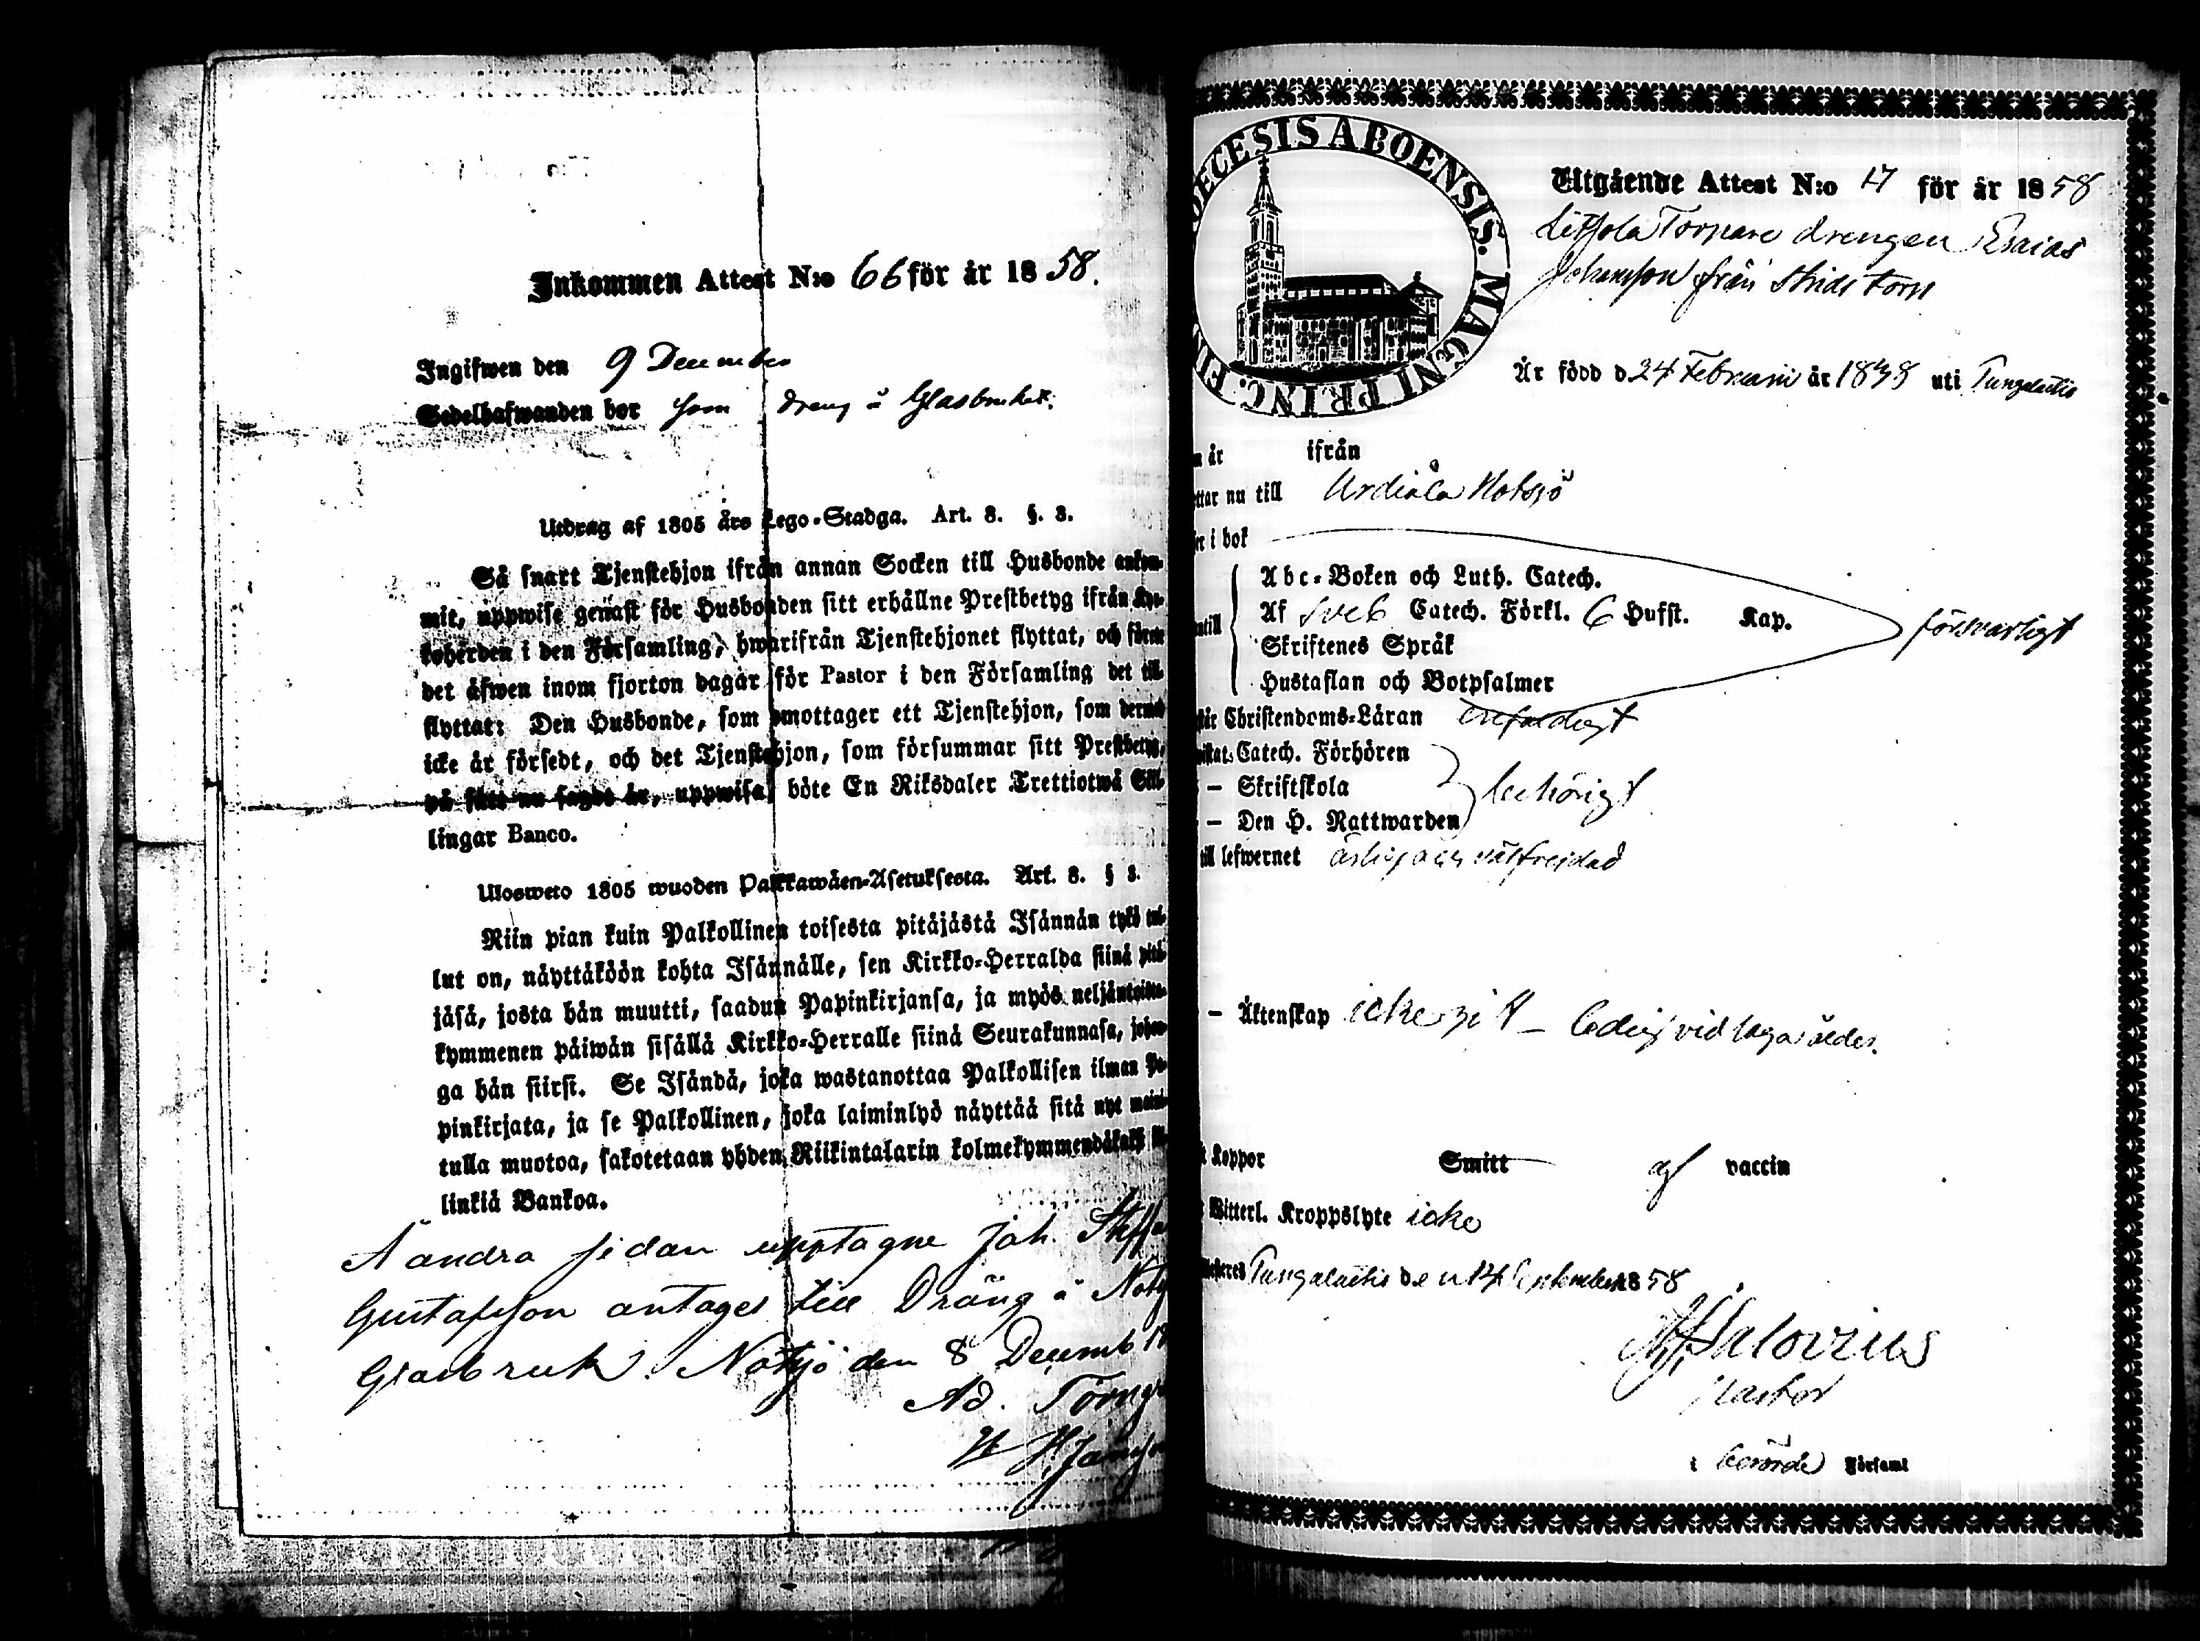 Inkommen Attest N:o 66 för år 1858.
Ingifwen den 9 December
Sedelhafwanden bor som dreng å Glasbruket.
Utdrag af 1805 års Lego-Stadga. Art. 8. §. 3.
Så snart Tjenstehjon ifrån annan Socken till Husbonde ankom-
mit, uppwise genast för Husbonden sitt erhållne Prestbetyg ifrån Kyr-
koherden i den Församling, hwarifrån Tjenstehjonet flyttat, och förete
det äfwen inom fjorton dagar för Pastor i den Församling det till-
flyttat: Den Husbonde, som emottager ett Tjenstehjon, som dermed
icke är försedt, och det Tjenstehjon, som försummar sitt Prestbetyg,
på sätt nu sagdt är, uppwisa, böte En Riksdaler Trettiotwå Skil-
lingar Banco.
Ulosweto 1805 wuoden Palkkawäen-Asetuksesta. Art. 8. § 3.
Niin pian kuin Palkollinen toisesta pitäjästä Isännän tykö tul-
lut on, näyttäköön kohta Isännälle, sen Kirkko-Herralda siinä pitä-
jäsä, josta hän muutti, saadun Papinkirjansa, ja myös neljäntoista-
kymmenen päiwän sisällä Kirkko-Herralle siinä Seurakunnasa, johon-
ga hän siirsi. Se Isändä, joka wastanottaa Palkollisen ilman Pa-
pinkirjata, ja se Palkollinen, joka laiminlyö näyttää sitä nyt maini-
tulla muotoa, sakotetaan yhden Riikintalarin kolmekymmendäkaksi
linkiä Bankoa.
Å andra sidan upptagne Joh.
Gustafsson antages till Dräng å
Glasbruk. Notsjö den 8 Decemb
Ad.
DECESIS ABOENSIS. MAGNI PRINC. FIN
Utgående Attest N:o 17 för år 1858
Torpare drengen Esaias
Johansson från
Är född d 24 Februarii år uti Pungalaitio
år ifrån
ttar nu till Urdiala Notsjö
i bok
Abc-Boken och Luth. Catech.
Af Sveb Catech. Förkl. 6 Hufst. Kap. försvarligt
Skriftenes Språk
Hustaflan och Botpsalmer
Christendoms-Läran enfaldigt
Catech. Förhören
– Skriftskola behörigt
– Den H. Nattwarden
till lefwernet ärlig och välfrejdad
– Äktenskap icke gift – ledig vid laga ålder.
Koppor Smitt af vaccin
Witterl. Kroppslyte icke
Pungalaitio den 14 September 1858
Salovius
Pastor
i berörde Församl